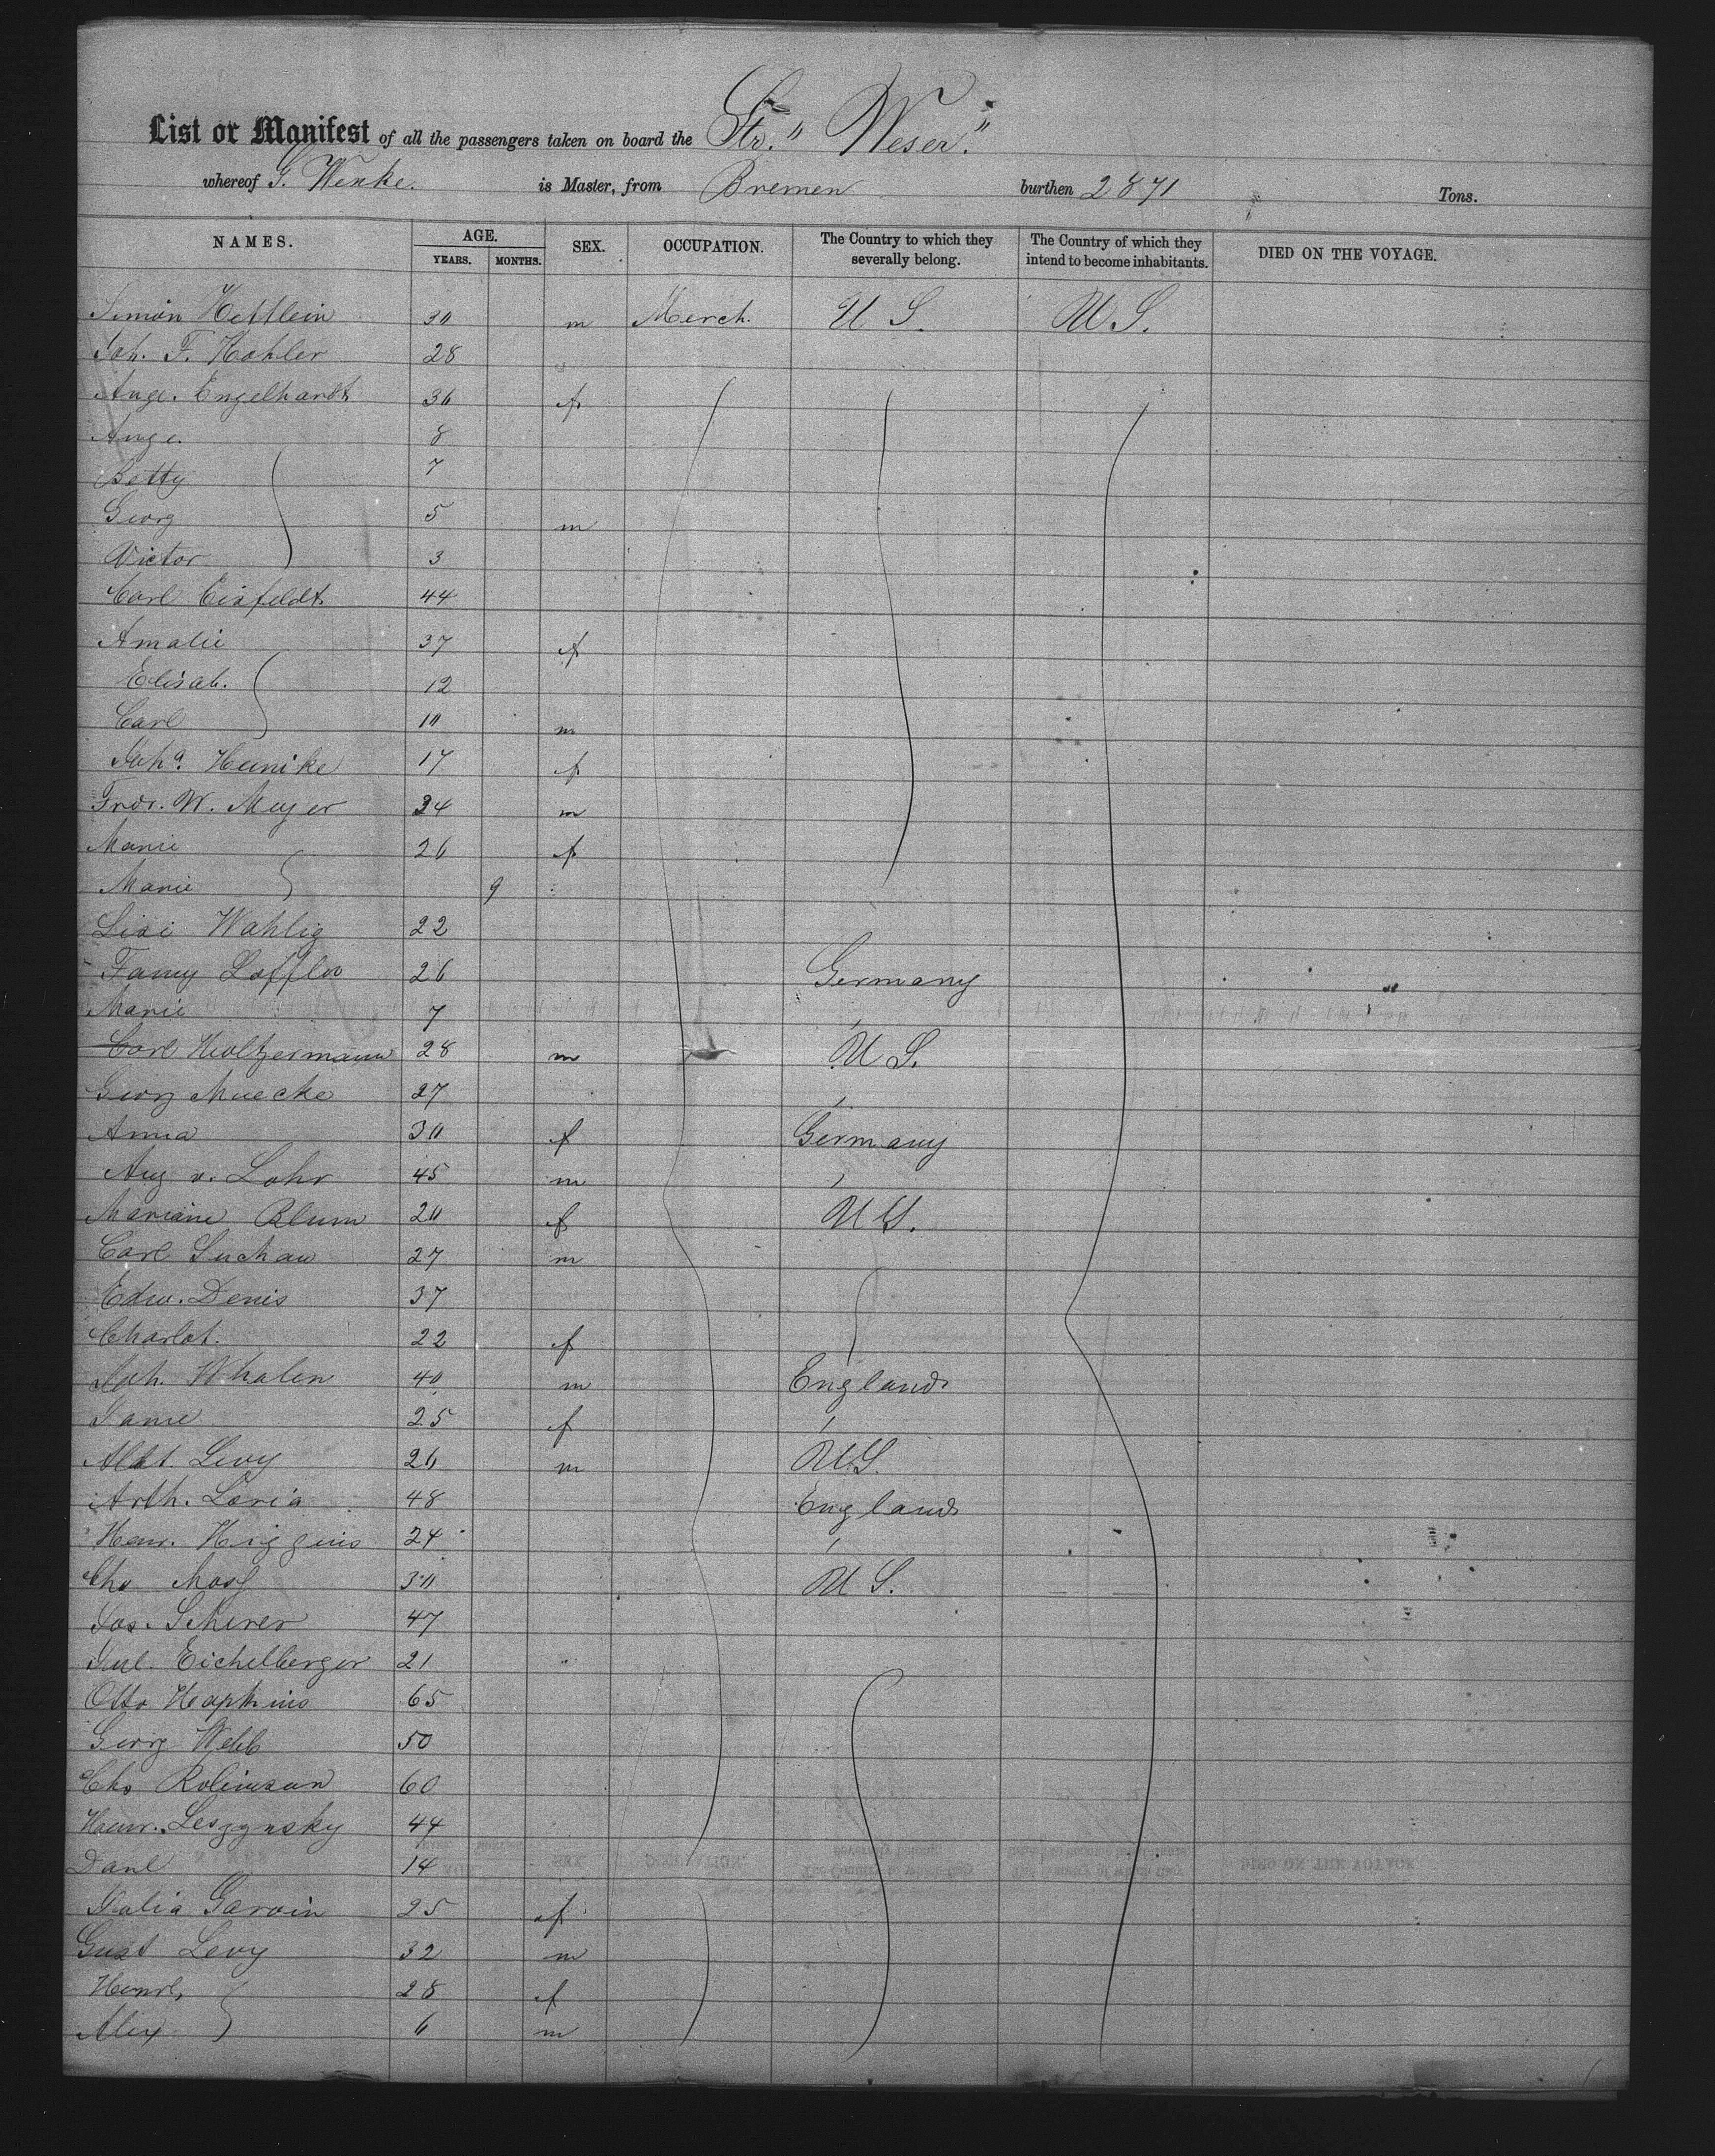 List or Manifest of all the passengers taken on board the Str. "Weser."
whereof G. Wenke. is Master, from Bremen burthen 2871 Tons.
NAMES. AGE. YEARS. MONTHS. SEX. OCCUPATION. The Country to which they severally belong. The Country of which they intend to become inhabitants. DIED ON THE VOYAGE.
Simon Hettlein 30 m Merch. U S. U S.
Joh. F. Kohler 28
Auge. Engelhardt 36 f
Auge. 8
Betty 7
Georg 5 m
Victor 3
Carl Eisfeldt 44
Amalie 37 f
Elisab. 12
Carl 10 m
Joha. Heinike 17 f
Frdr. W. Meyer 34 m
Marie 26 f
Marie 9
Lisi Wahlig 22
Fanny Loffler 26 Germany
Marie 7 "
Carl Holtzermann 28 m U S.
Georg Muecke 27 "
Anna 30 f Germany
Aug v. Lohr 45 m "
Mariane Blum 20 f U S.
Carl Suchau 27 m
Edw. Denis 37
Charlot. 22 f
Joh. Whalen 40 m England
Jane 25 f "
Albt. Levy 26 m U.S.
Arth. Loria 48 England
Henr. Higgins 24 "
Chs 30 U S.
Jos. Scherer 47
Jul. Eichelberger 21
Otto Hopkins 65
Georg Webb 50
Chs Robinson 60
Henr. Leszynsky 44
Danl 14
Julia Garvin 25 f
Gust Levy 32 m
Henrt, 28 f
Alex 6 m